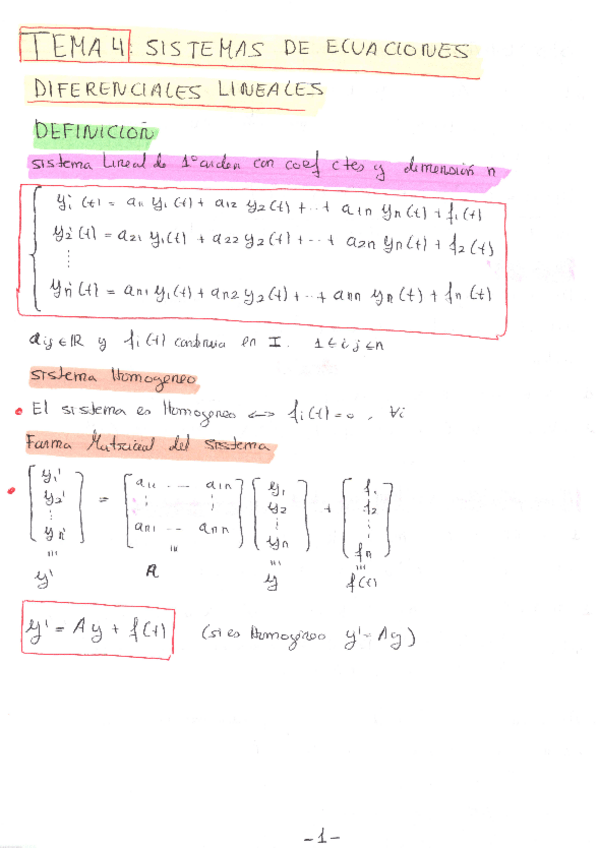 TEMA 4: SISTEMAS DE ECUACIONES
DIFERENCIALES LINEALES
DEFINICION
sistema Lineal de 1º orden con coef ctes y dimensión n
y1'(t) = a11 y1(t) + a12 y2(t) + ... + a1n yn(t) + f1(t)
y2'(t) = a21 y1(t) + a22 y2(t) + ... + a2n yn(t) + f2(t)
⋮
yn'(t) = an1 y1(t) + an2 y2(t) + ... + ann yn(t) + fn(t)
aij ∈ IR y fi(t) continua en I. 1 ≤ i, j ≤ n
sistema Homogeneo
• El sistema es Homogeneo <=> fi(t) = 0, ∀i
Forma Matricial del sistema
• [y1' y2' ⋮ yn'] = [a11 ... a1n ⋮ ⋮ an1 ... ann] [y1 y2 ⋮ yn] + [f1 f2 ⋮ fn]
y' A y f(t)
y' = Ay + f(t) (si es Homogéneo y' = Ay)
-1-